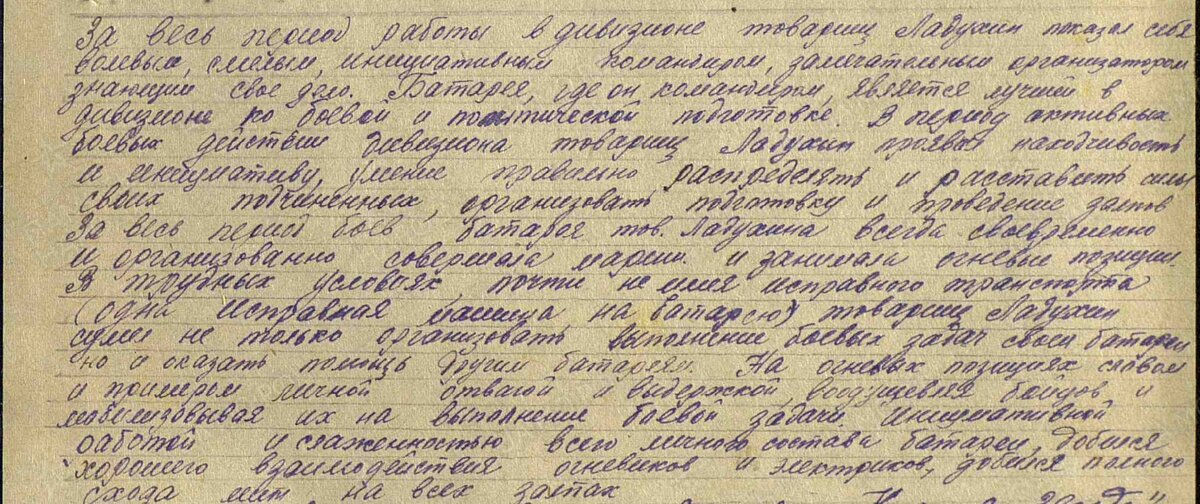 За весь период работы в дивизионе товарищ Ладухин показал себя
волевым, смелым, инициативным командиром, замечательным организатором
знающим свое дело. Батарея, где он командиром, является лучшей в
дивизионе по боевой и политической подготовке. В период активных
боевых действий дивизиона товарищ Ладухин проявил находчивость
и инициативу, умение правильно распределять и расставить силы
своих подчиненных, организовать подготовку и проведение залпов
За весь период боев батарея тов. Ладухина всегда своевременно
и организованно совершала марши и занимала огневые позиции.
В трудных условиях почти не имея исправного транспорта
(одна исправная машина на батарею) товарищ Ладухин
сумел не только организовать выполнение боевых задач своей батареи
но и оказать помощь другим батареям. На огневых позициях словом
и примером личной отвагой и выдержкой, воодушевляя бойцов и
мобилизовывая их на выполнение боевой задачи. Инициативной
работой и слаженностью всего личного состава батареи, добился
хорошего взаимодействия огневиков и электриков, добился полного
схода мин на всех залпах